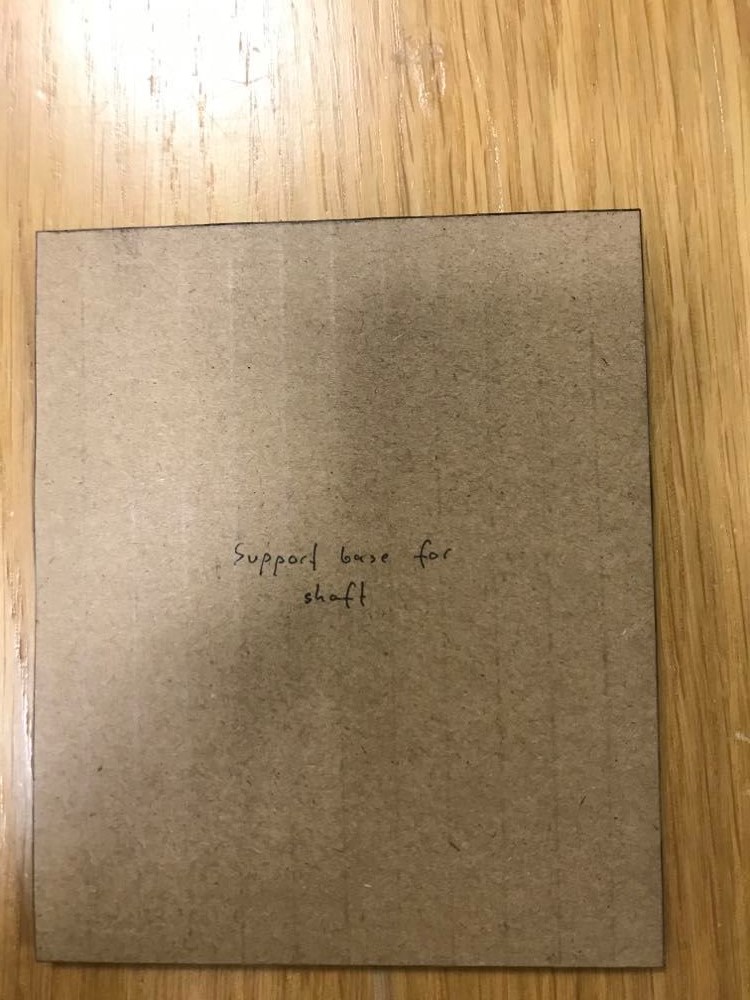 Support base for
shaft